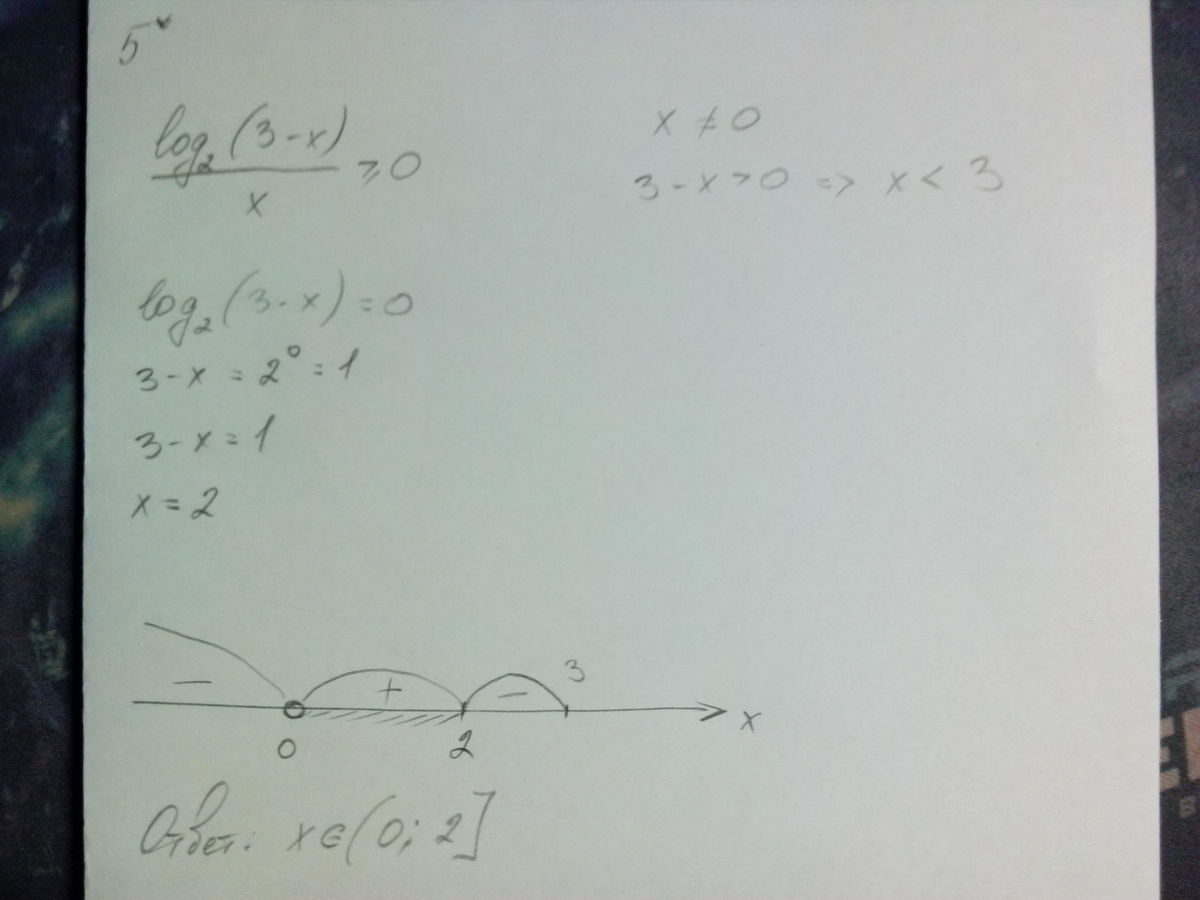 5*
log₂(3-x)
x
≥ 0
x ≠ 0
3 - x > 0 => x < 3
log₂(3-x) = 0
3 - x = 2⁰ = 1
3 - x = 1
x = 2
3
- + -
x
0 2
Ответ: x ∈ (0; 2]